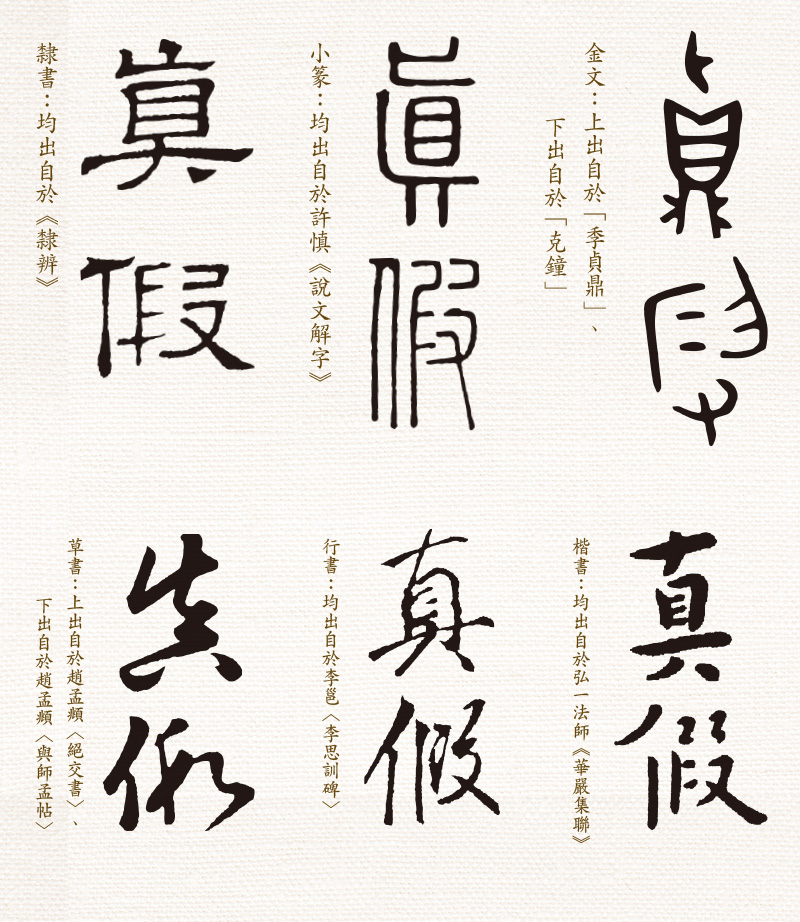 真
假
金文：上出自於「季貞鼎」、
下出自於「克鐘」
真
假
小篆：均出自於許慎《說文解字》
真
假
隸書：均出自於《隸辨》
真
假
楷書：均出自於弘一法師《華嚴集聯》
真
假
行書：均出自於李邕〈李思訓碑〉
真
假
草書：上出自於趙孟頫〈絕交書〉、
下出自於趙孟頫〈與師孟帖〉